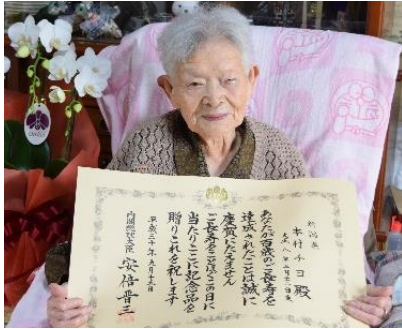 本村チヨ殿
あなたが百歳のご長寿を
達成されたことは誠に
慶賀にたえません
ご長寿をことほぐこの日に
当たりここに記念品を
贈りこれを祝します
平成三十年九月十五日
内閣総理大臣 安倍晋三